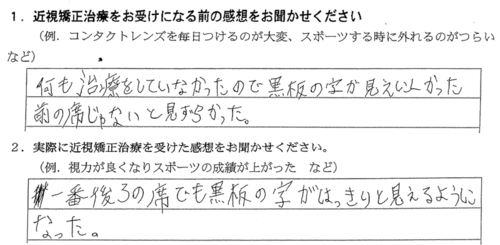 1．近視矯正治療をお受けになる前の感想をお聞かせください
（例．コンタクトレンズを毎日つけるのが大変、スポーツする時に外れるのがつらい
など）
何も治療をしていなかったので黒板の字が見えにくかった
前の席じゃないと見ずらかった。
2．実際に近視矯正治療を受けた感想をお聞かせください。
（例．視力が良くなりスポーツの成績が上がった　など）
一番後ろの席でも黒板の字がはっきりと見えるように
なった。